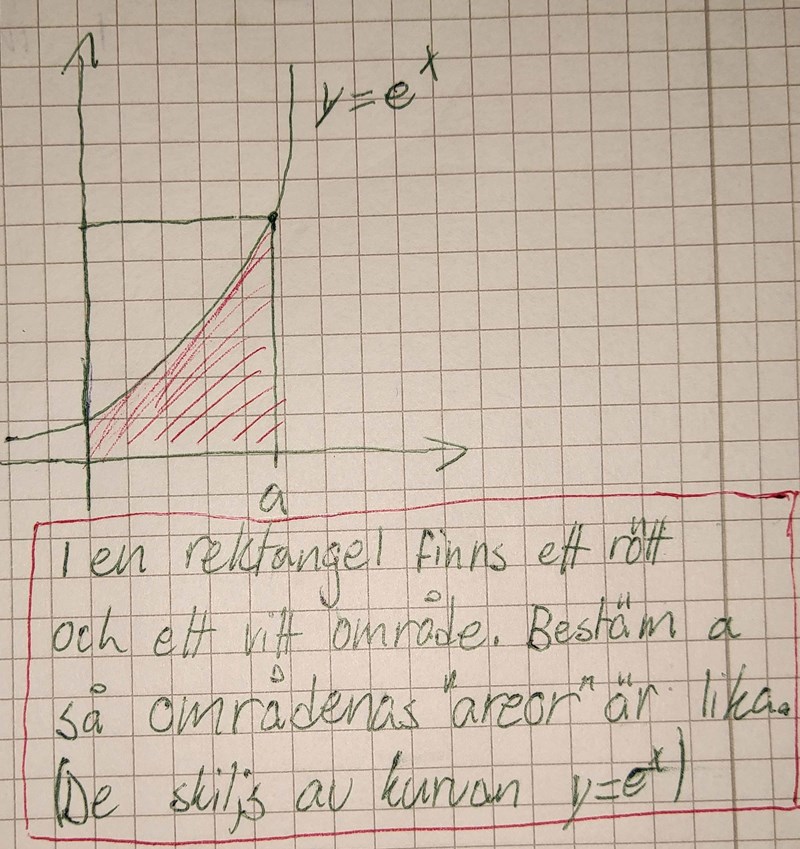 y=eˣ
a
I en rektangel finns ett rött
och ett vitt område. Bestäm a
så områdenas "areor" är lika.
(De skiljs av kurvan y=eˣ)